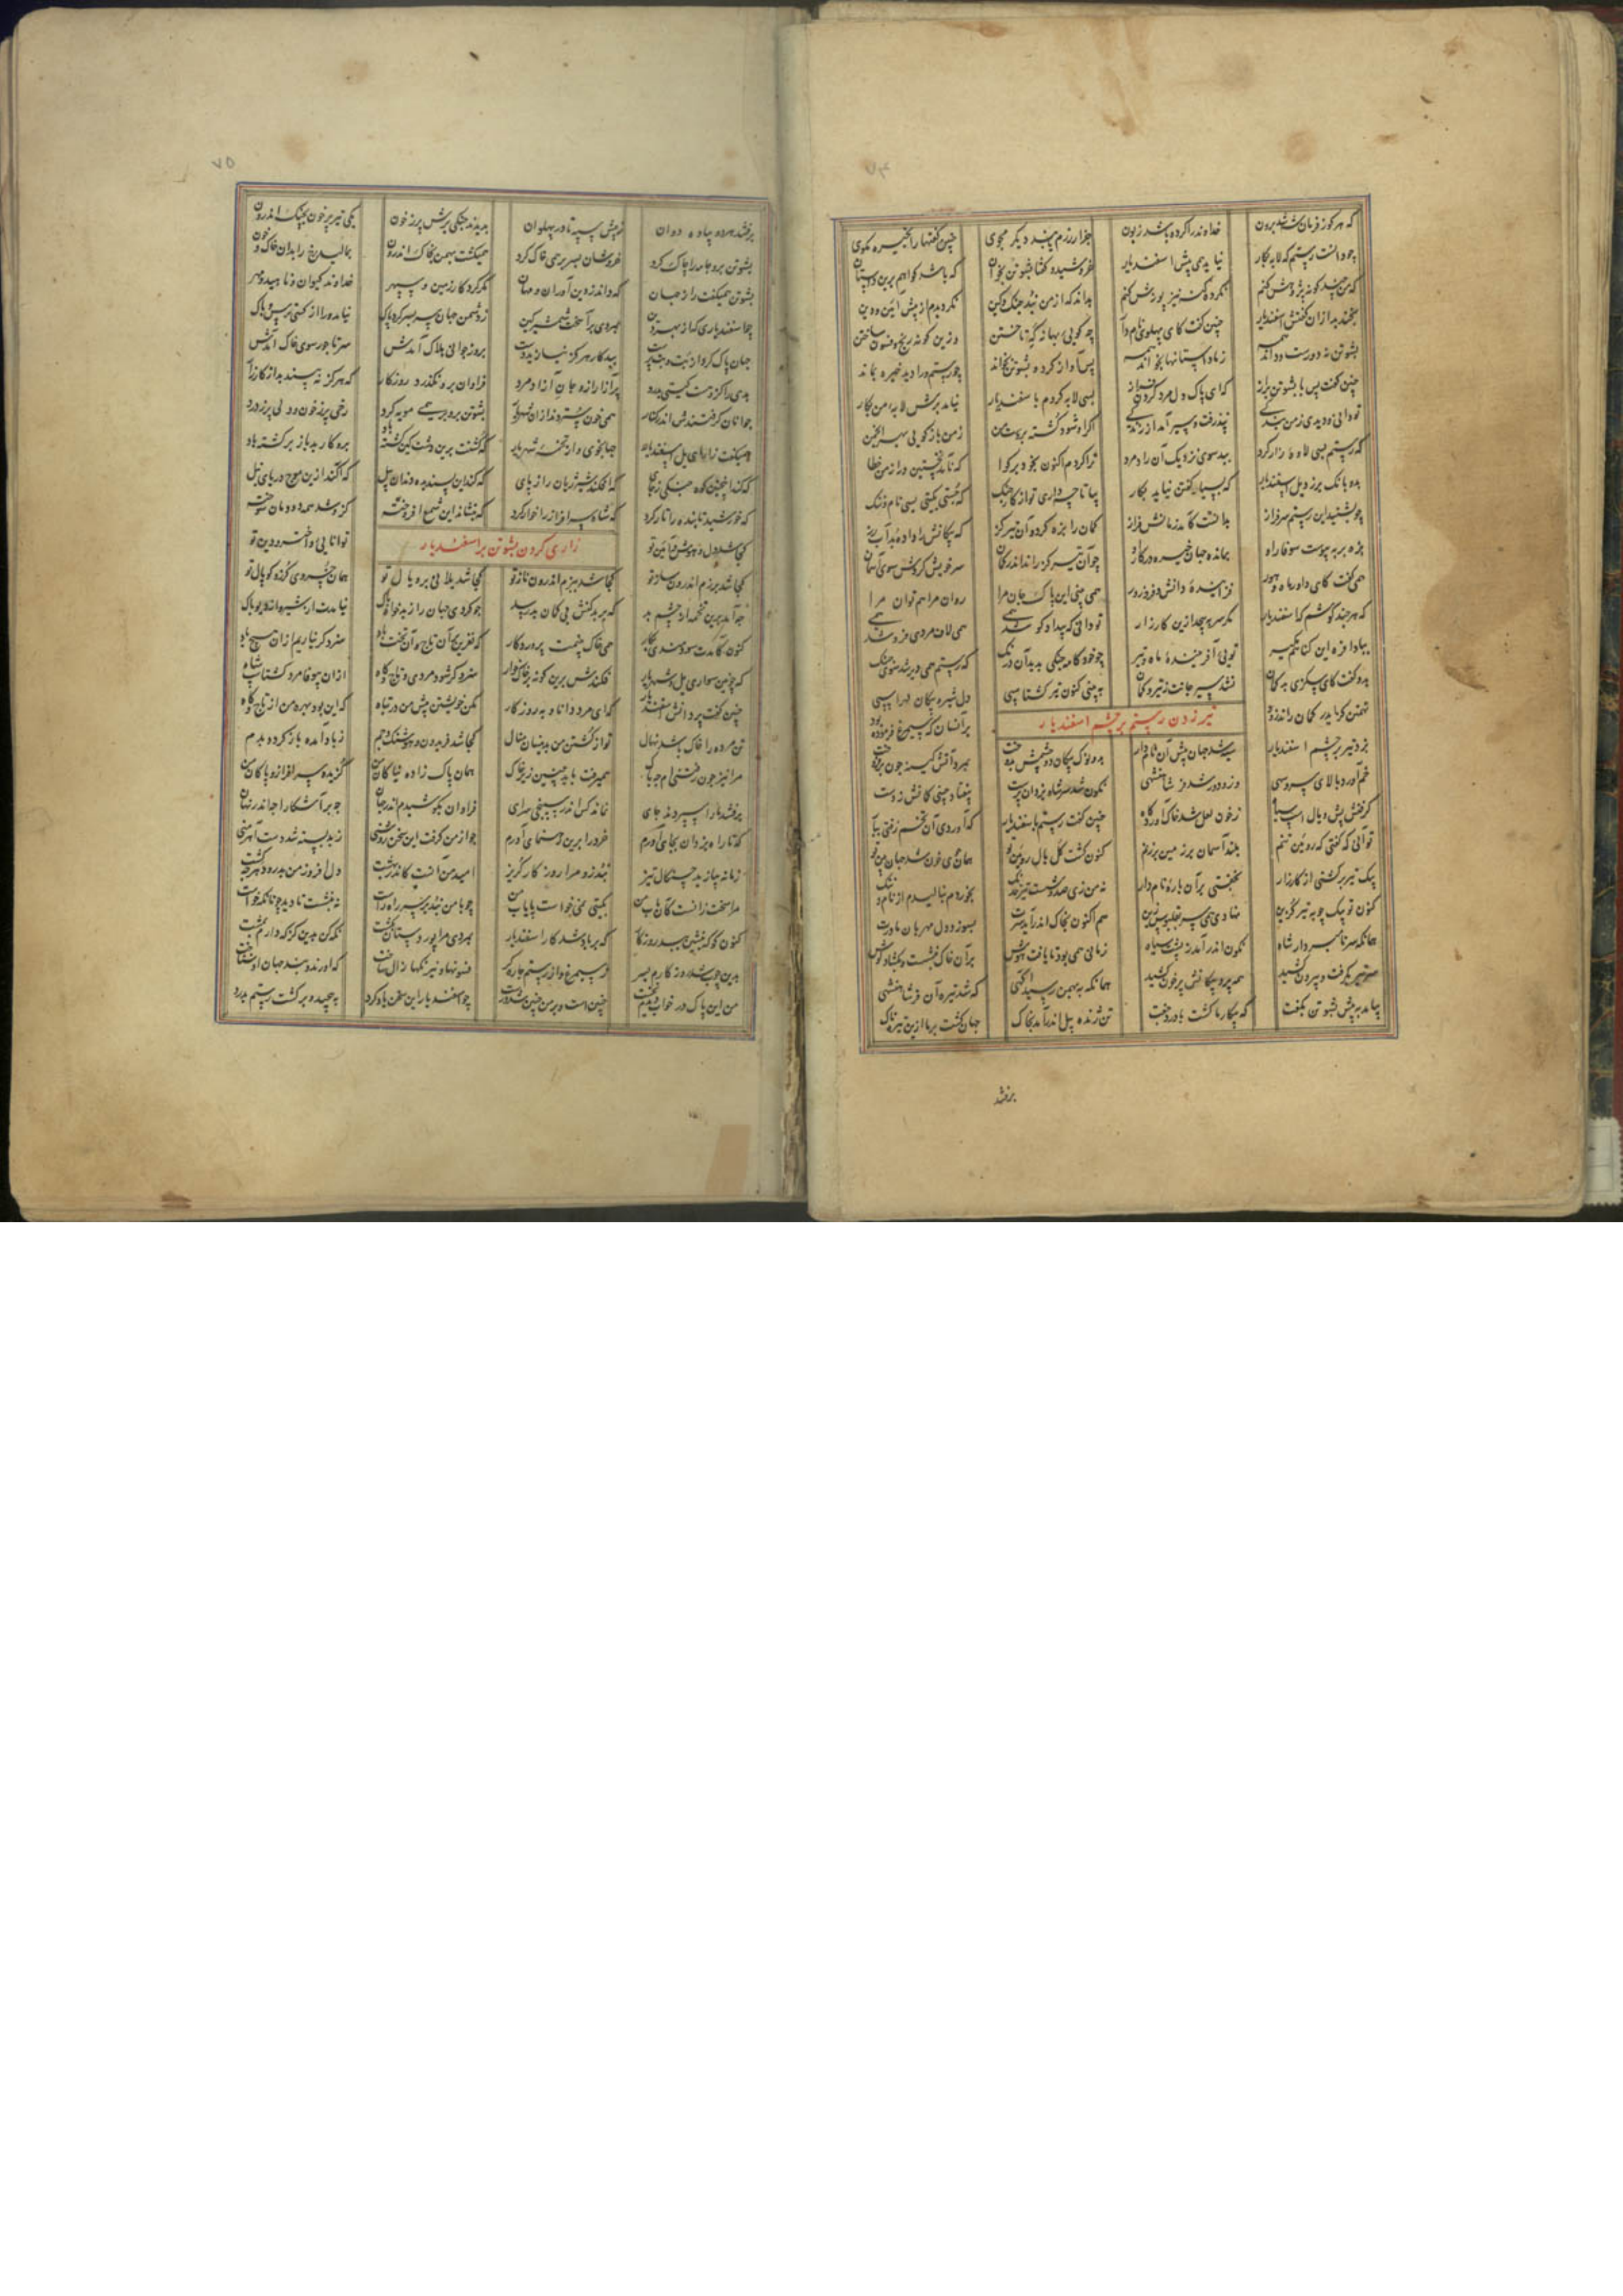 ۷۴
که هر کو ز فرمان شه شد برون خداوند را کرده باشد زبون جز از رزم بند دیگر مجوی چنین گفتها را بخیره مگوی
چو دانست رستم که لابه بکار نیاید همی پیش اسفندیار خروشید و گفتا پشوتن بخوان که باشد گواهم برین داستان
که من چند گونه پژوهش کنم نکرده گنه نیز پوزش کنم بداند که از من نبد جنگ و کین نگردیدم از پیش آیین و دین
بخندید ازان گفتش اسفندیار چنین گفت کای پهلو نامدار چه گویی بهانه گه تاختن وزین گونه رنج و فسون ساختن
پشوتن نه دورست و داند همه ز ما داستانها بخواند همه پس آواز کرد و پشوتن بخواند چو رستم ورا دید خیره بماند
چنین گفت پس با پشوتن براز که ای پاک دل مرد گردن فراز بسی لابه کردم با سفندیار نیامد برش لابه من بکار
تو دانی و دیدی ز من بندگی نپذرفت و سیر آمد از زندگی اگر او شود کشته بر دست من ز من بازگویی بهر انجمن
که رستم بسی لابه و زار کرد ببد سوی نزدیک آن رادمرد ترا کردم اکنون بخود بر گوا که نآمد نخستین ورا از من خطا
بدو بانگ برزد یل اسفندیار که بسیار گفتن نیاید بکار بیا تا چه داری تو از کار جنگ که جستی بگیتی بسی نام و ننگ
چو بشنید این رستم سرفراز بدانست کآمد زمانش فراز کمان را بزه کرد و آن تیر گز که پیکانش را داده بد آب رز
بزه بر بپیوست سوفار راه بمانده جهان خیره در کار او چو آن تیر گز راند اندر کمان سر خویش کردش سوی آسمان
همی گفت کای داور ماه و هور فزاینده دانش و فر و زور همی بینی این پاک جان مرا روان مرا هم توان مرا
که هر چند کوشم که اسفندیار مگر سر بپیچد ازین کارزار تو دانی که بیداد کوشد همی همی لاف مردی فروشد همی
ببادافره این گناهم مگیر تویی آفریننده ماه و تیر چو خودکامه جنگی بدید آن درنگ که رستم همی دیر شد سوی جنگ
بدو گفت کای سگزی بدگمان نشد سیر جانت ز تیر و کمان ببینی کنون تیر گشتاسپی دل شیر و پیکان لهراسپی
تیر زدن رستم بر چشم اسفندیار
تهمتن گز اندر کمان راند زود بر آنسان که سیمرغ فرموده بود
بزد تیر بر چشم اسفندیار سیه شد جهان پیش آن نامدار بدو نوک پیکان دو چشمش بدوخت بمرد آتش کینه چون برفروخت
خم آورد بالای سرو سهی وزو دور شد فر شاهنشهی نگون شد سر شاه یزدان پرست بیفتاد چینی کمانش ز دست
گرفتش پش و یال اسپ سیاه ز خون لعل شد خاک آوردگاه چنین گفت رستم باسفندیار که آوردی آن تخم زفتی ببار
تو آنی که گفتی که رویین تنم بلند آسمان بر زمین برزنم کنون گشت
بیک تیر برگشتی از کارزار بخفتی بر آن باره نامدار نه من زی صد و شست تیر خدنگ بخوردم ننالیدم از نام و ننگ
کنون تو بیک چوبه تیر گزین نهادی همی سر بقربوس زین هم اکنون بخاک اندر آید سرت بسوزد دل مهربان مادرت
همانگه سر نامبردار شاه نگون اندر آمد ز پشت سیاه زمانی همی بود تا یافت هوش بر آن خاک بنشست و بگشاد گوش
سر تیر بگرفت و بیرون کشید همه پر و پیکانش پر خون کشید همانگه به بهمن رسید آگهی که شد تیره آن فر شاهنشهی
بیامد به پیش پشوتن بگفت که پیکار ما گشت با درد جفت تن ژنده پیل اندر آمد بخاک جهان گشت بر ما ازین تیر خاک
برفتند
۷۵
برفتند هر دو پیاده دوان ز پیش سپه تا در پهلوان بدیدند جنگی برش پر ز خون یکی تیر پر خون بچنگ اندرون
پشوتن برو جامه را چاک کرد خروشان بسر بر همی خاک کرد همیگشت بهمن بخاک اندرون بمالید رخ را بدان خاک و خون
پشوتن همیگفت راز جهان که داند ز دین آوران و مهان مگر گردگار زمین و سپهر خداوند کیوان و ناهید و مهر
چو اسفندیاری که از بهر دین بمردی برآهخت شمشیر کین ز دشمن جهان سربسر کرد پاک نیامد ورا از کسی ترس و باک
جهان پاک کرد از بت و بت پرست ببد کار هرگز نیازید دست بروز جوانی هلاک آمدش سر تاجور سوی خاک آمدش
بدی را کزو هست گیتی بدرد پر آزار ازو جان آزادمرد فراوان برو نگذرد روزگار که هرگز نه بیند بد از کارزار
جوانان گرفتندش اندر کنار همی خون ستردند ازان شهریار پشوتن برو بر همی مویه کرد رخی پر ز خون و دلی پر ز درد
همیگفت زار ای یل اسفندیار جهانجوی و از تخمه شهریار
که کند اینچنین کوه جنگی ز جای که افکند شیر ژیان را ز پای که کند این پسندیده دندان پیل که آگند ازین موج دریای نیل
که خورشید تابنده را تار کرد که شاه سرافراز را خوار کرد که بنشاند این شمع افروخته کزو شد همه دودمان سوخته
زاری کردن پشوتن بر اسفندیار
کجا شد دل و هوش و آیین تو توانایی و اختر و دین تو
کجا شد برزم اندرون ساز تو کجا شد ببزم اندرون ناز تو کجا شد یلا آن بر و یال تو همان خسروی گرزه و کوپال تو
چه آمد برین تخمه از چشم بد که بر بدکنش بی گمان بد رسد چو کردی جهان را ز بدخواه پاک نیامدت از شیر و از دیو باک
کنون کآمدت سودمندی بکار همی خاک بینمت پروردگار که نفرین بر آن تاج و آن تخت باد
که چونین سواری یل و شهریار فکندش برین گونه بر خاک خوار
چنین گفت پر دانش اسفندیار که ای مرد دانای به روزگار مکن خویشتن پیش من در تباه که این بود بهره من از تاج و گاه
تن مرده را خاک باشد نهال تو از کشتن من بدینسان منال کجا شد فریدون و هوشنگ و جم ز باد آمده باز گردد بدم
همان پاک زاده نیاکان من گزیده سرافراز و پاکان من
برفتند و ما را سپردند جای نماند کس اندر سپنجی سرای فراوان بکوشیدم اندر جهان چو بر آشکارا چه اندر نهان
که تا راه یزدان بجای آورم خرد را برین رهنمای آورم چو از من گرفت این سخن روشنی ز بد بسته شد دست آهرمنی
زمانه بیازید چنگال تیز نبد زو مرا روز کار گریز امید من آنست کاندر بهشت دل افروز من بدرود هرچه کشت
کنون گوز که بنشین ببد روزگار که بر باد شد کار اسفندیار بمردی مرا پور دستان نکشت نگه کن بدین گز که دارم بمشت
بدین چوب شد روزگارم بسر ز سیمرغ و از رستم چاره گر فسونها و نیرنگها زال ساخت که اورند و بند جهان او شناخت
چو اسفندیار این سخن یاد کرد بپیچید و برگشت رستم بدرد